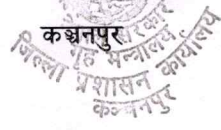 कञ्चनपुर
नेपाल सरकार
गृह मन्त्रालय
जिल्ला प्रशासन कार्यालय
कञ्चनपुर